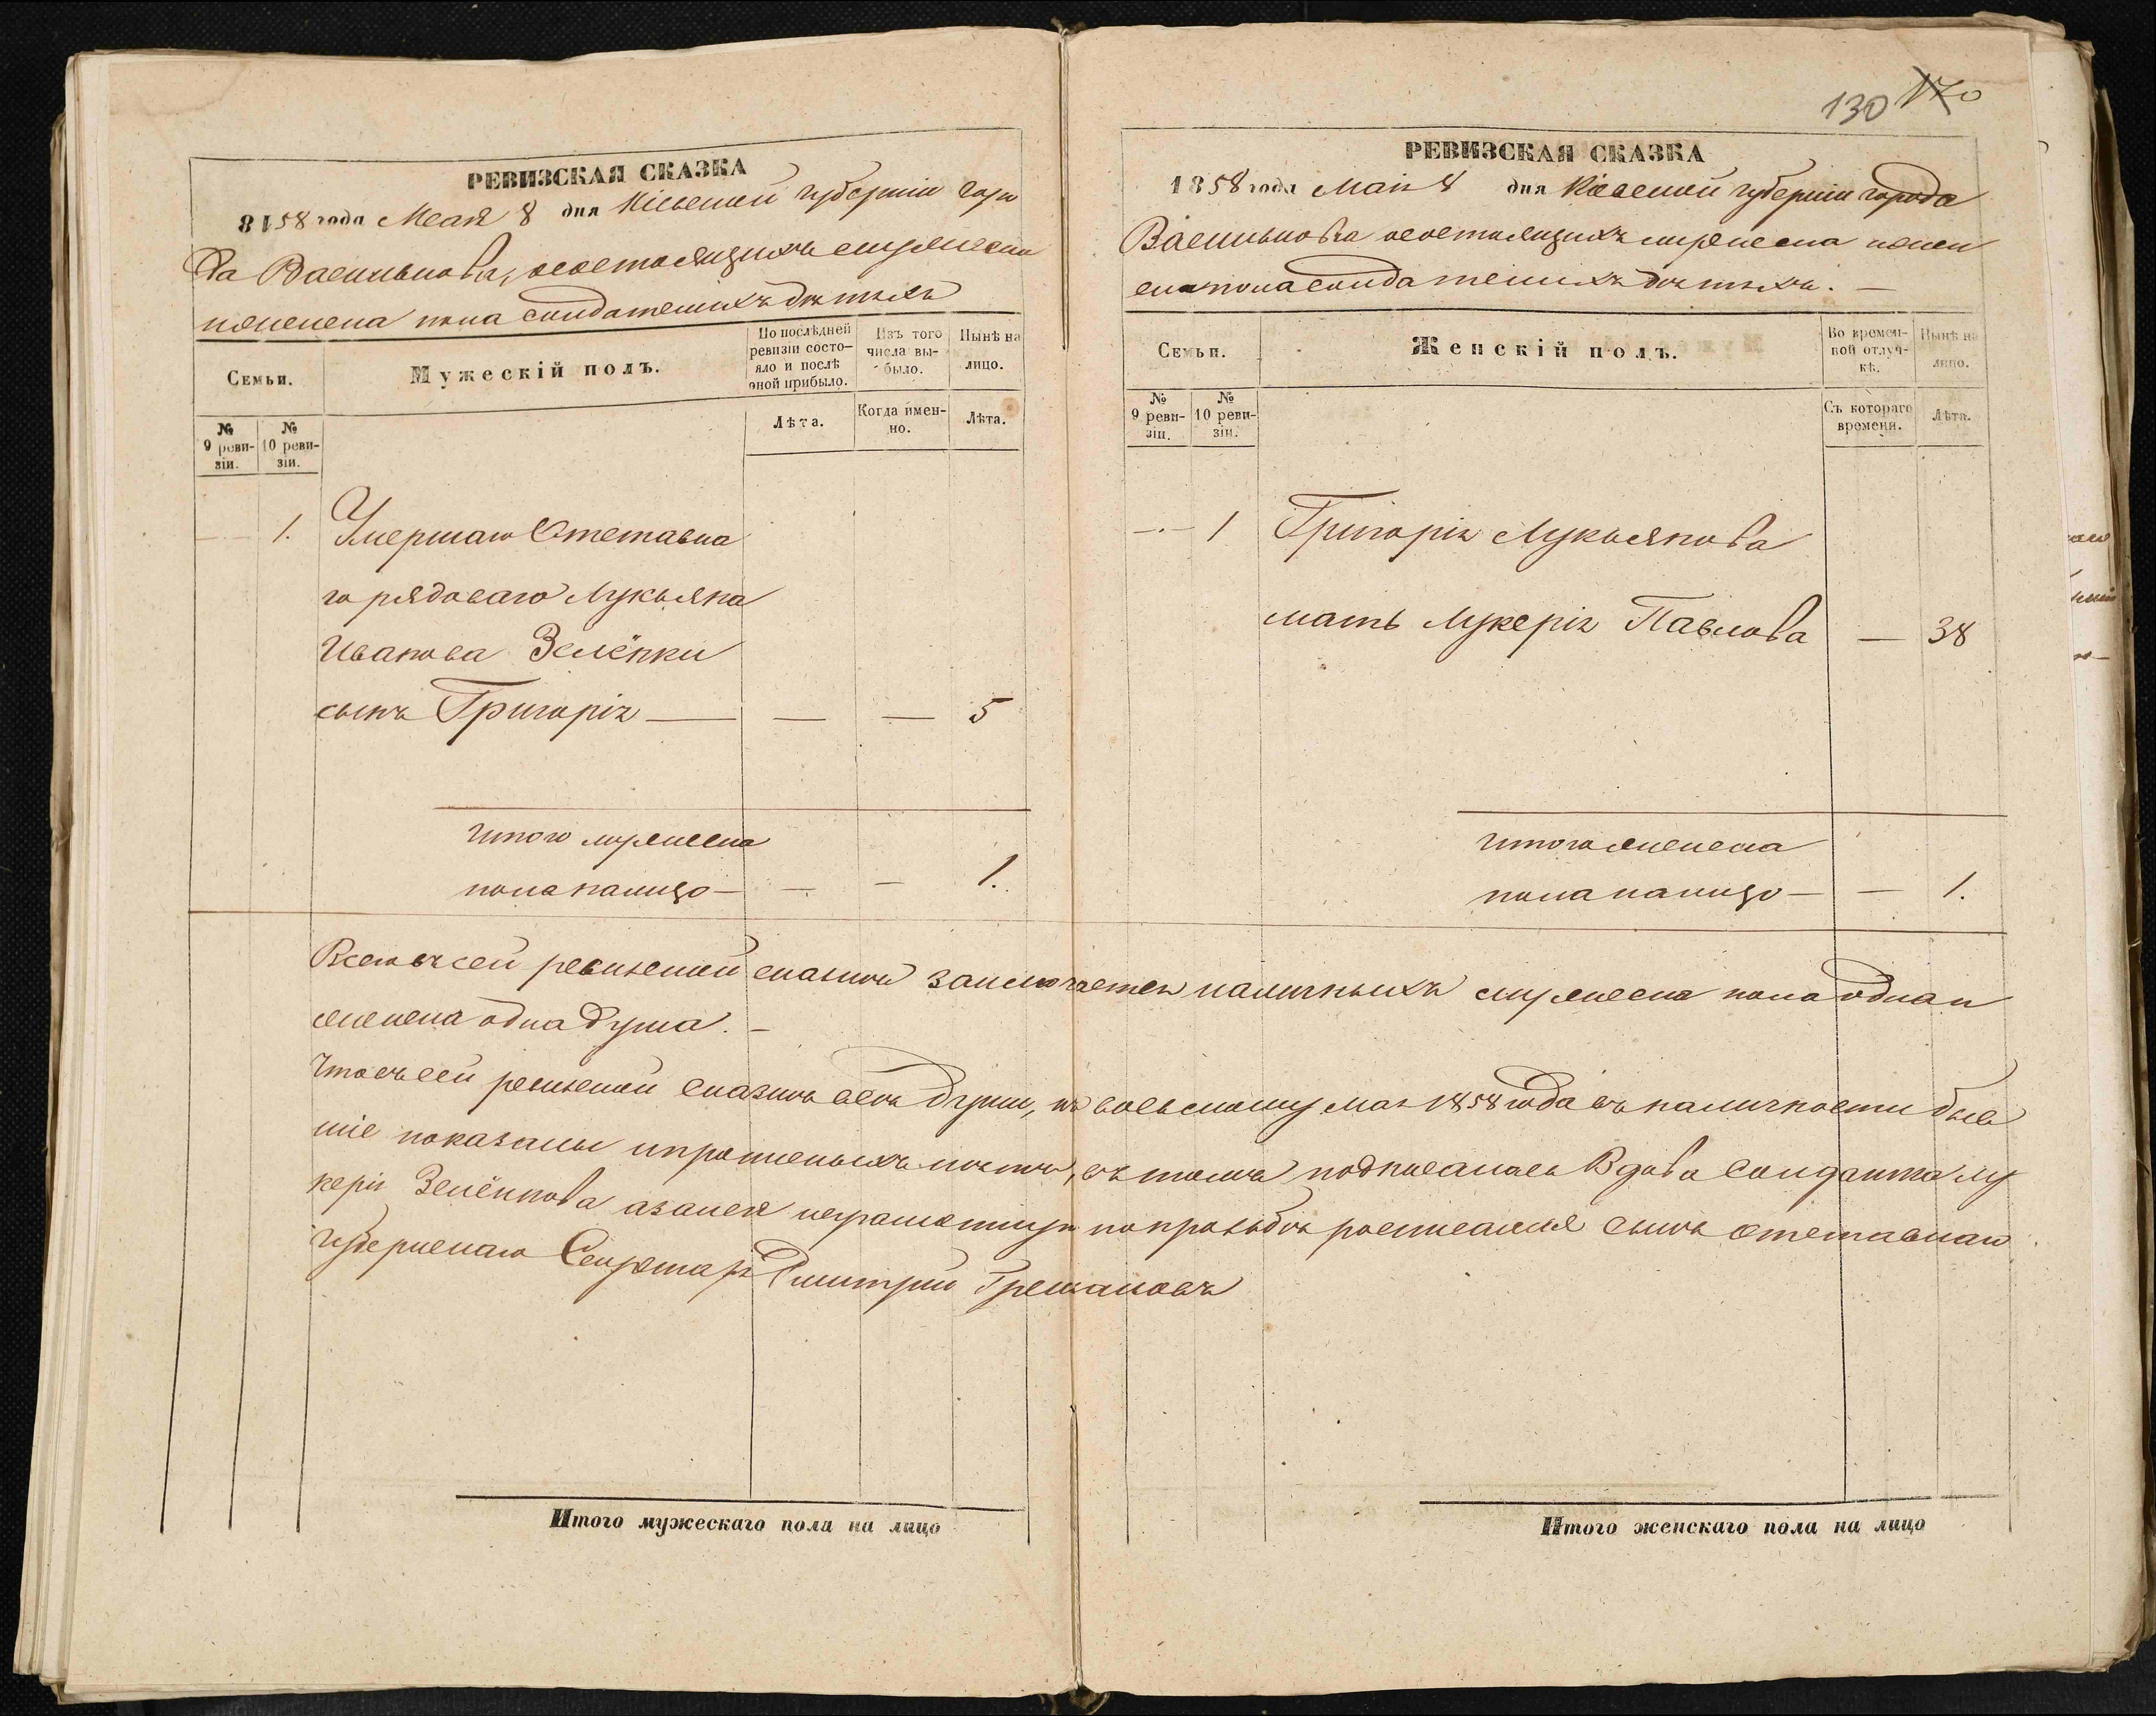 РЕВИЗСКАЯ СКАЗКА
8158 года Мая 8 дня Кіевской губерніи горо
да Василькова, осостоящихъ мужеска
иженска пола солдатскихъ дѣтяхъ
Семьи.
Мужескій полъ.
По послѣдней ревизіи состо-яло и послѣ оной прибыло.
Изъ того числа вы-было.
Нынѣ на лицо.
№ 9 реви-зіи.
№ 10 реви-зіи.
Лѣта.
Когда имен-но.
Лѣта.
1. Умершаго Отставна
го рядоваго Лукьяна
Иванова Зелёнки
сынъ Григорій — — — 5
Итого мужеска
пола налицо — — — 1.
130 170
РЕВИЗСКАЯ СКАЗКА
1858 года Маія 8 дня Кіевской губерніи города
Василькова осостоящихъ мужеска ижен
ска пола солдатскихъ дѣтяхъ. —
Семьи.
Женскій полъ.
Во времен-ной отлуч-кѣ.
Нынѣ на лицо.
№ 9 реви-зіи.
№ 10 реви-зіи.
Съ котораго времени.
Лѣта.
1 Григорія Лукьянова
мать Лукерія Павлова — 38
Итого женска
пола налицо — — 1.
Всего въ сей ревизской сказкѣ заключается наличныхъ мужеска пола одна и
женска одна душа. —
Что въ сей ревизской сказкѣ всѣ души, къ восьмому мая 1858 года въ наличности быв
шіе показаны и пропускныхъ нѣтъ, въ томъ подписалась Вдова Солдатка Лу
керія Зелёнкова а за нея неграмотную по прозьбѣ росписался сынъ отставнаго
губернскаго Секретаря Дмитрій
Итого мужескаго пола на лицо
Итого женскаго пола на лицо